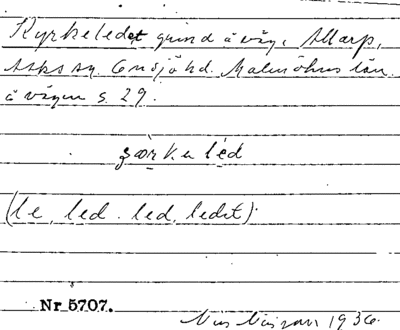 Kyrkeledet grind å väg, Allarp,
Asks sn. Onsjö hd. Malmöhus län.
å vägen s. 29.
(le, led. led, ledet).
Nr 5707.
1936.